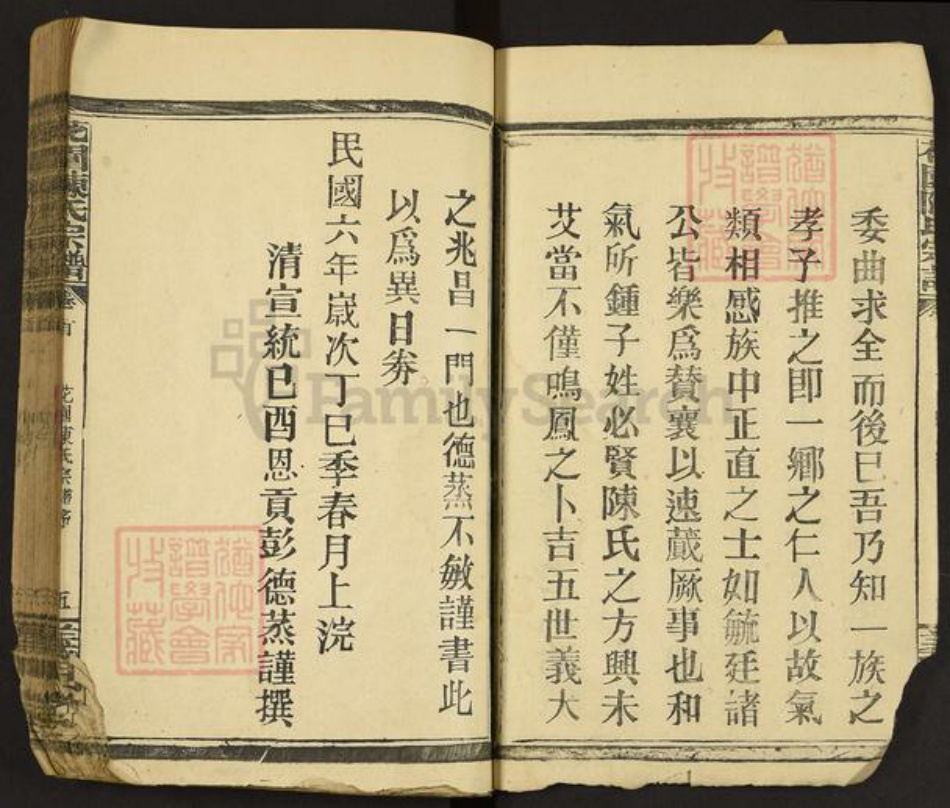 委曲求全而後已吾乃知一族之
孝子推之即一鄉之仁人以故氣
類相感族中正直之士如毓廷諸
公皆樂爲贊襄以速蕆厥事也和
氣所鍾子姓必賢陳氏之方興未
艾當不僅鳴鳳之卜吉五世義大
之兆昌一門也德蒸不敏謹書此
以爲異日券
民國六年歲次丁巳季春月上浣
清宣統己酉恩貢彭德蒸謹撰
花園陳氏宗譜
卷首
花園陳氏宗譜序
五
譜學會
收藏
FamilySearch